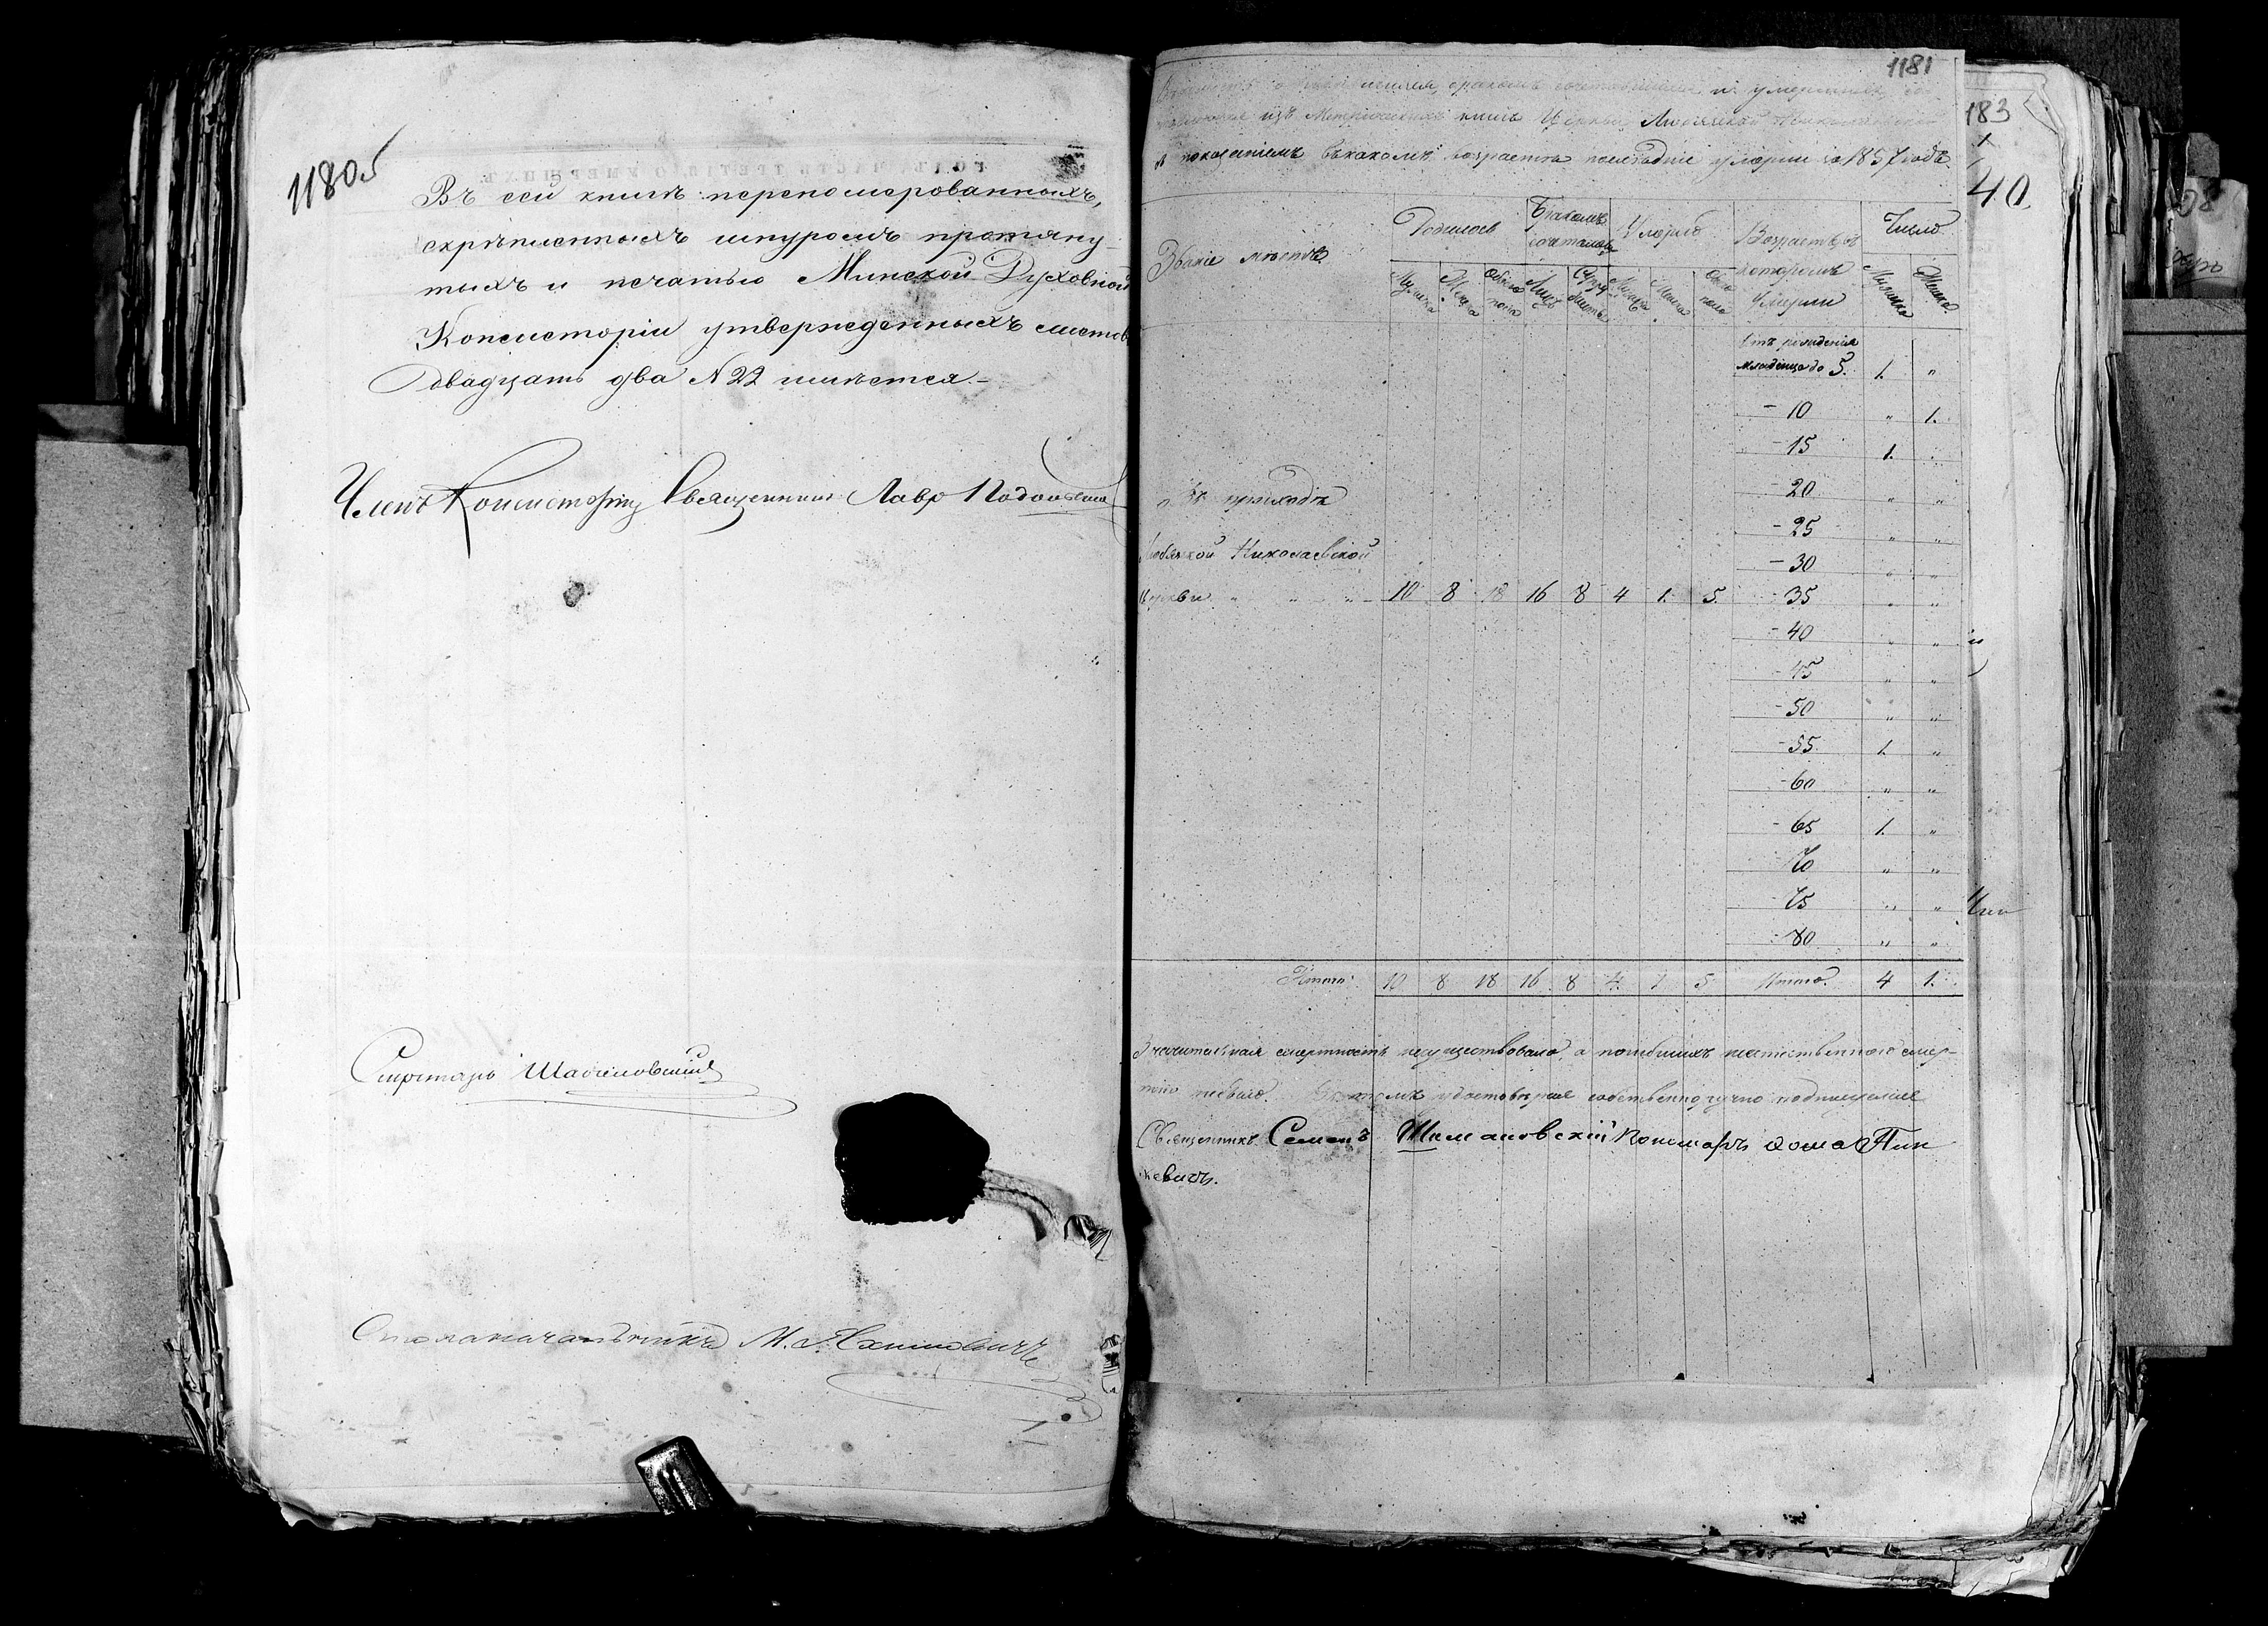 1180 об
Въ сей книгѣ перенумерованныхъ,
скрѣпленныхъ шнуромъ протяну-
тыхъ и печатью Минской Духовной
Консисторіи утвержденныхъ листовъ
двадцать два № 22 имѣется.-
Членъ Консисторіи Священникъ Лавръ
Секретарь
Столоначальникъ М.
1181
183
40
и умершихъ
изъ Метрическихъ книгъ Церкви Николаевской
съ показаніемъ въ какомъ возрастѣ послѣдніе умерли за 1857 годъ.
Званіе мѣстъ
Родилось
Бракомъ сочеталось
Умерло
Возрастъ въ которомъ умерли
Число
Мужеска
Женска
Обоего пола
Лицъ
Мужеска
Женска
Обоего пола
Мужеска
Женска
Отъ рожденія
младенца до 5. 1. "
- 10 " 1.
- 15 1. "
- 20 " "
- 25 " "
- 30 " "
- 35 " "
- 40 " "
- 45 " "
- 50 " "
- 55 1. "
- 60 " "
- 65 1. "
70 " "
- 75 " "
- 80 " "
въ приходѣ
Николаевской
Церкви " " " 10 8 18 16 8 4 1. 5.
Итого 10 8 18 16 8 4 1 5 Итого. 4 1.
Значительная смертность не существовала, а погибшихъ неестественною смер-
тію небыло. Въ чемъ удостовѣряю собственноручно подписуемся
Священникъ Семенъ Шимановскій Пономарь Фома Пин
кевичъ.